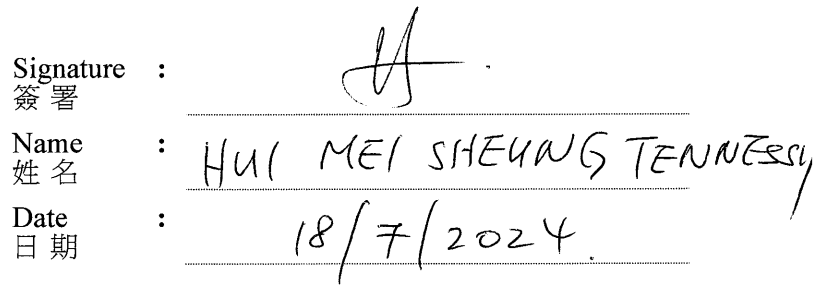 Signature :
簽署
Name : HUI MEI SHEUNG TENNESSY
姓名
Date : 18/7/2024.
日期